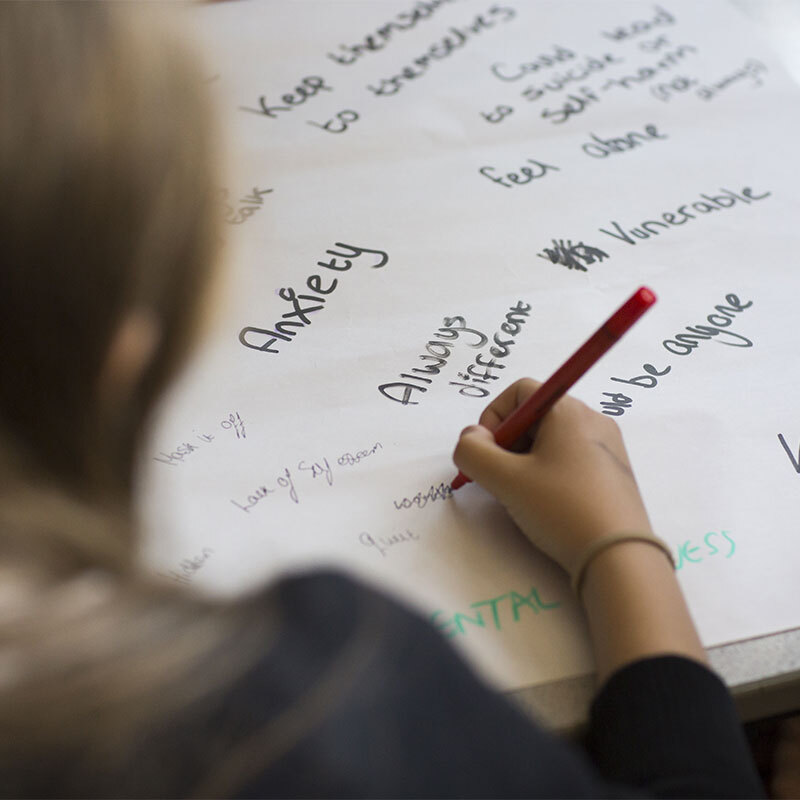 Keep themselves
to themselves
Could lead
to suicide or
self-harm
(not always)
feel alone
talk
Vunerable
Anxiety
Always
different
uld be anyone
Mask it off
Lack of Self esteem
quiet
Hidden
ENTAL
ESS